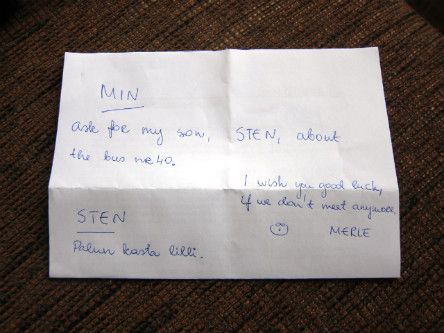 MIN
ask for my son, STEN, about
the bus nr 40.
I wish you good luck,
if we don't meet anymore,
MERLE
STEN
Palun kasta lilli.